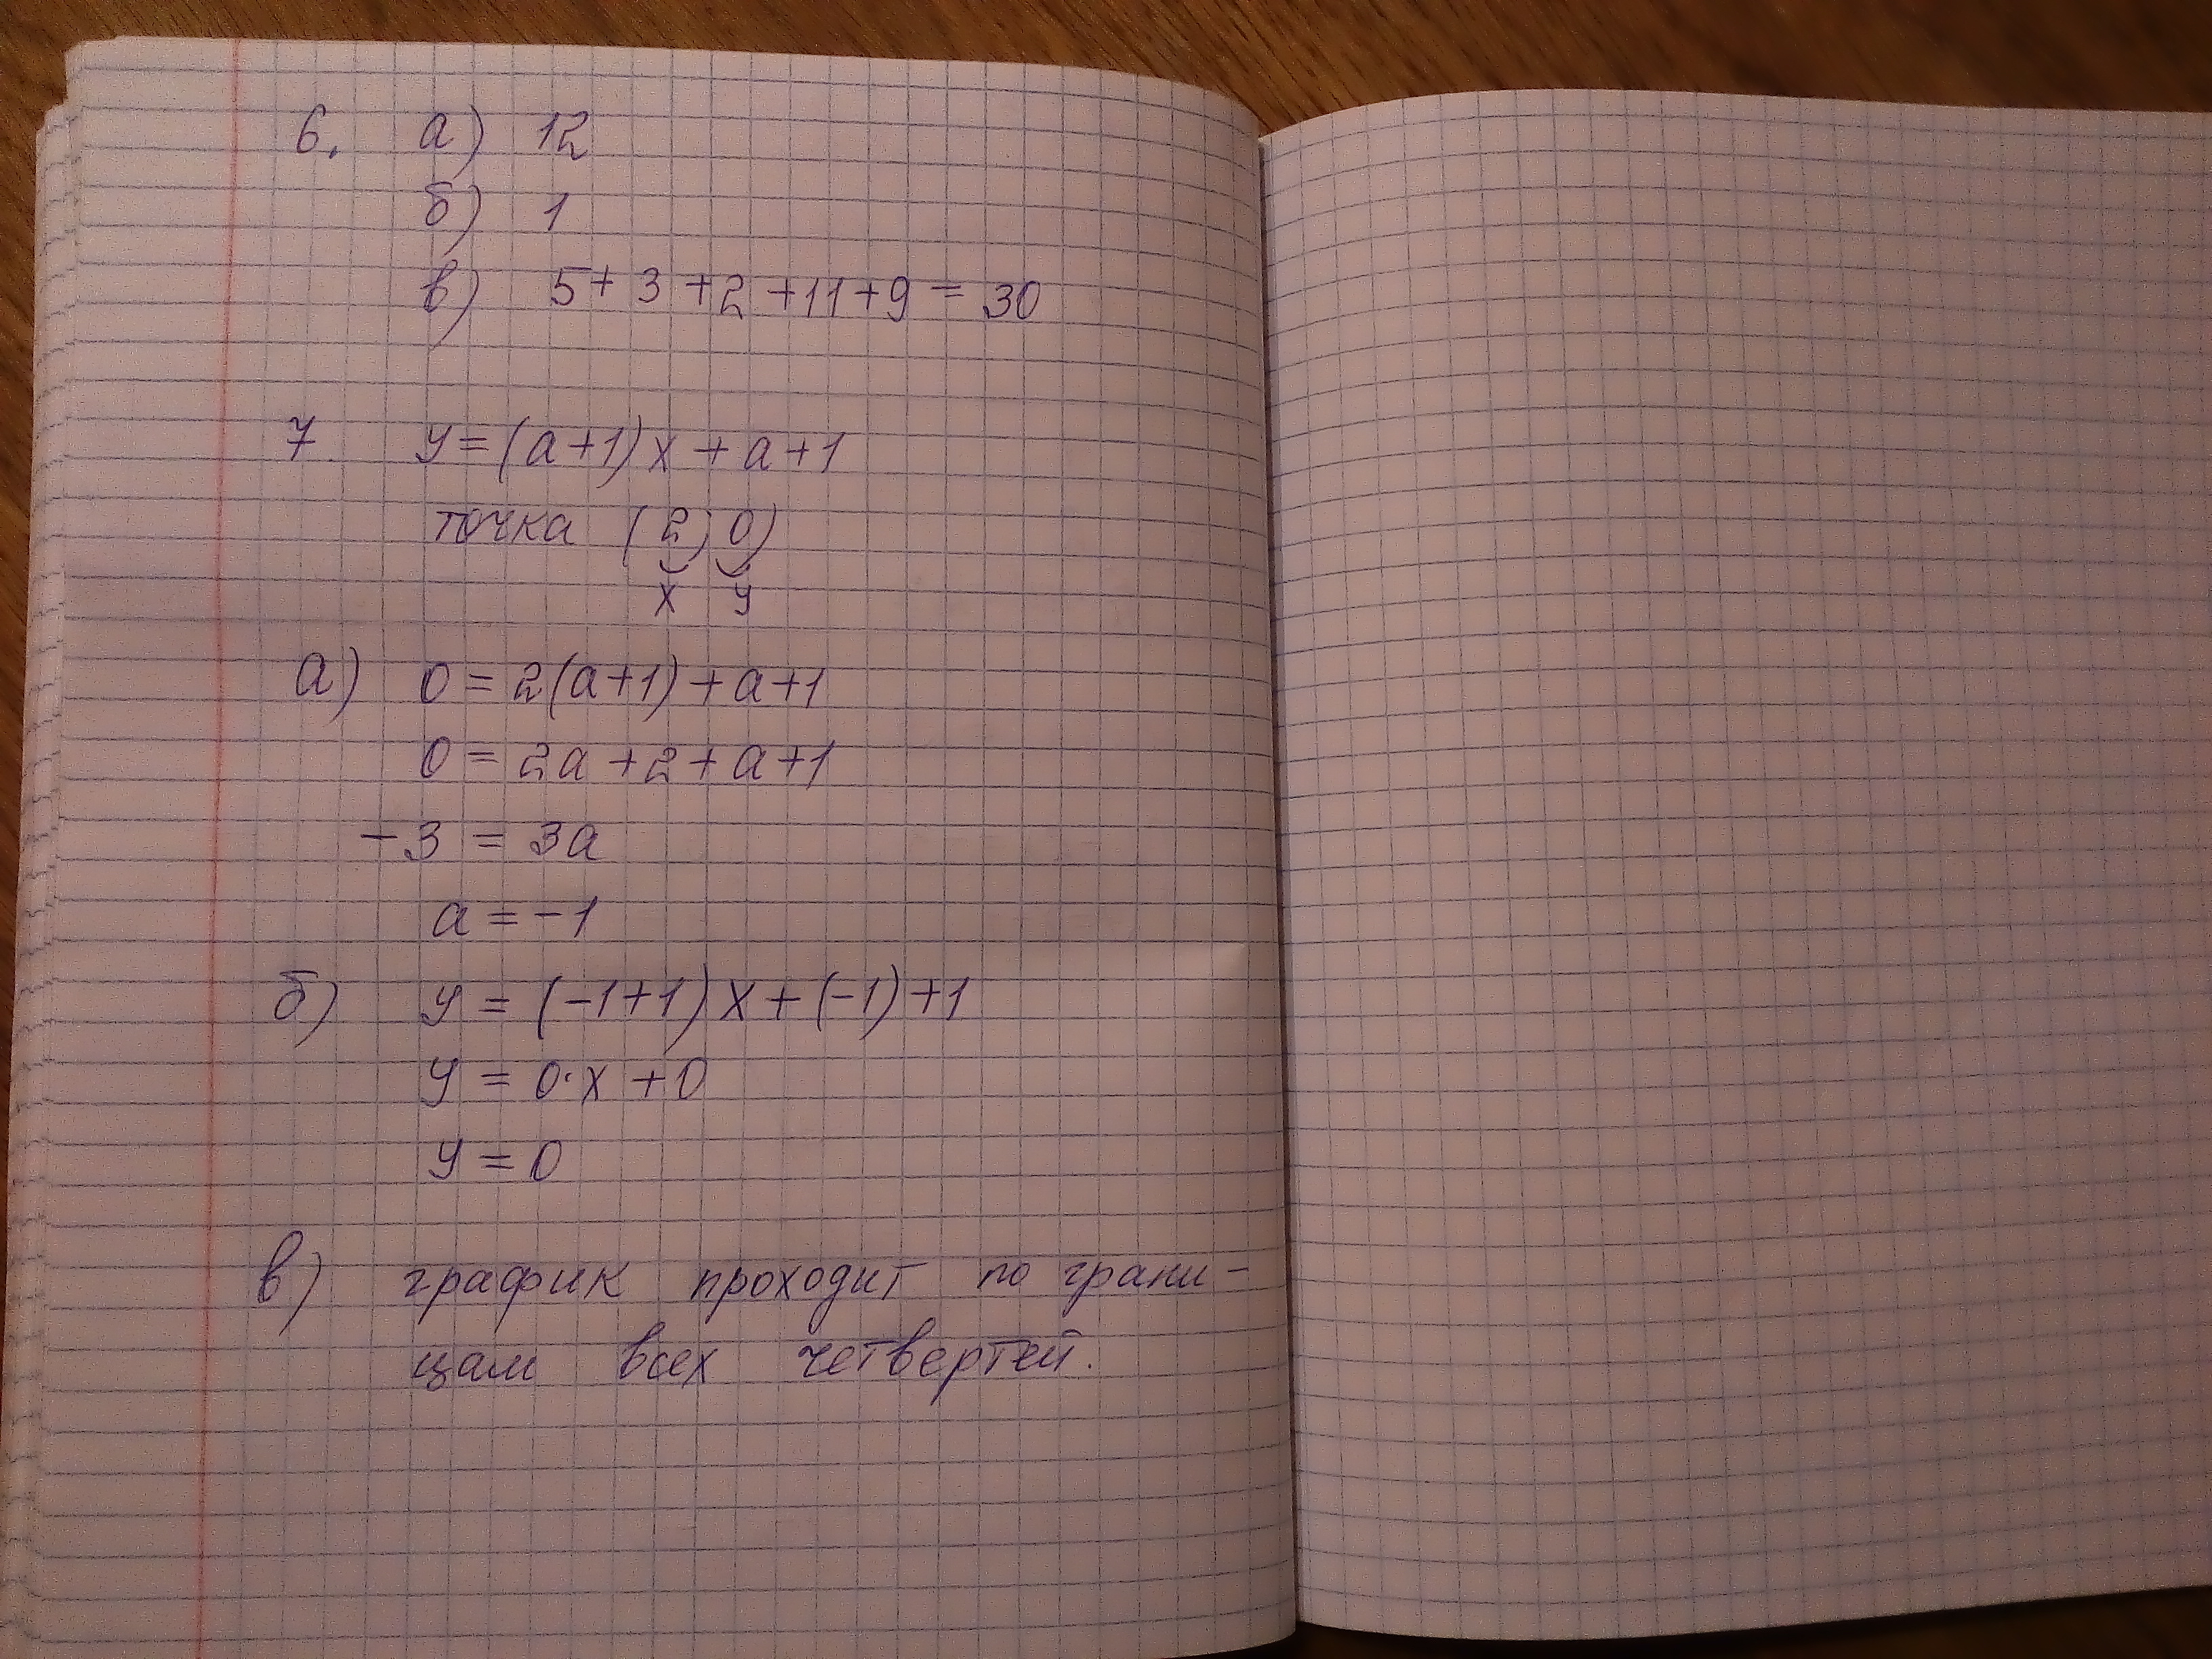 6. а) 12
б) 1
в) 5+3+2+11+9=30
7 y=(a+1)x+a+1
точка (2;0)
x y
а) 0=2(a+1)+a+1
0=2a+2+a+1
-3=3a
a=-1
б) y=(-1+1)x+(-1)+1
y=0·x+0
y=0
в) график проходит по грани-
цам всех четвертей.